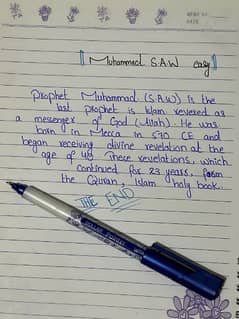 Muhammad S.A.W easy
Prophet Muhammad (S.A.W) is the
last prophet is Islam revered as
a messenger of God (Allah). He was
born in Mecca in 570 CE and
began receiving divine revelation at the
age of 40. These revelations, which
continued for 23 years, form
the Quran, Islam holy book.
THE END